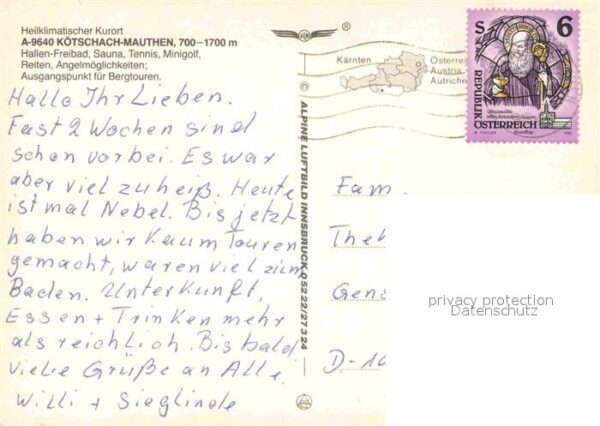 Heilklimatischer Kurort
A-9640 KÖTSCHACH-MAUTHEN, 700-1700 m
Hallen-Freibad, Sauna, Tennis, Minigolf,
Reiten, Angelmöglichkeiten;
Ausgangspunkt für Bergtouren.
Hallo Ihr Lieben.
Fast 2 Wochen sind
schon vorbei. Es war
aber viel zu heiß. Heute
ist mal Nebel. Bis jetzt
haben wir kaum Touren
gemacht, waren viel zum
Baden. Unterkunft,
Essen + Trinken mehr
als reichlich. Bis bald
viele Grüße an Alle
Willi + Sieglinde
ALPINE LUFTBILD INNSBRUCK 05222/27324
®
Kärnten
Österrei
Austria
Autriche
S 6
REPUBLIK
ÖSTERREICH
Fam.
Thek
Gens
D-10
privacy protection
Datenschutz